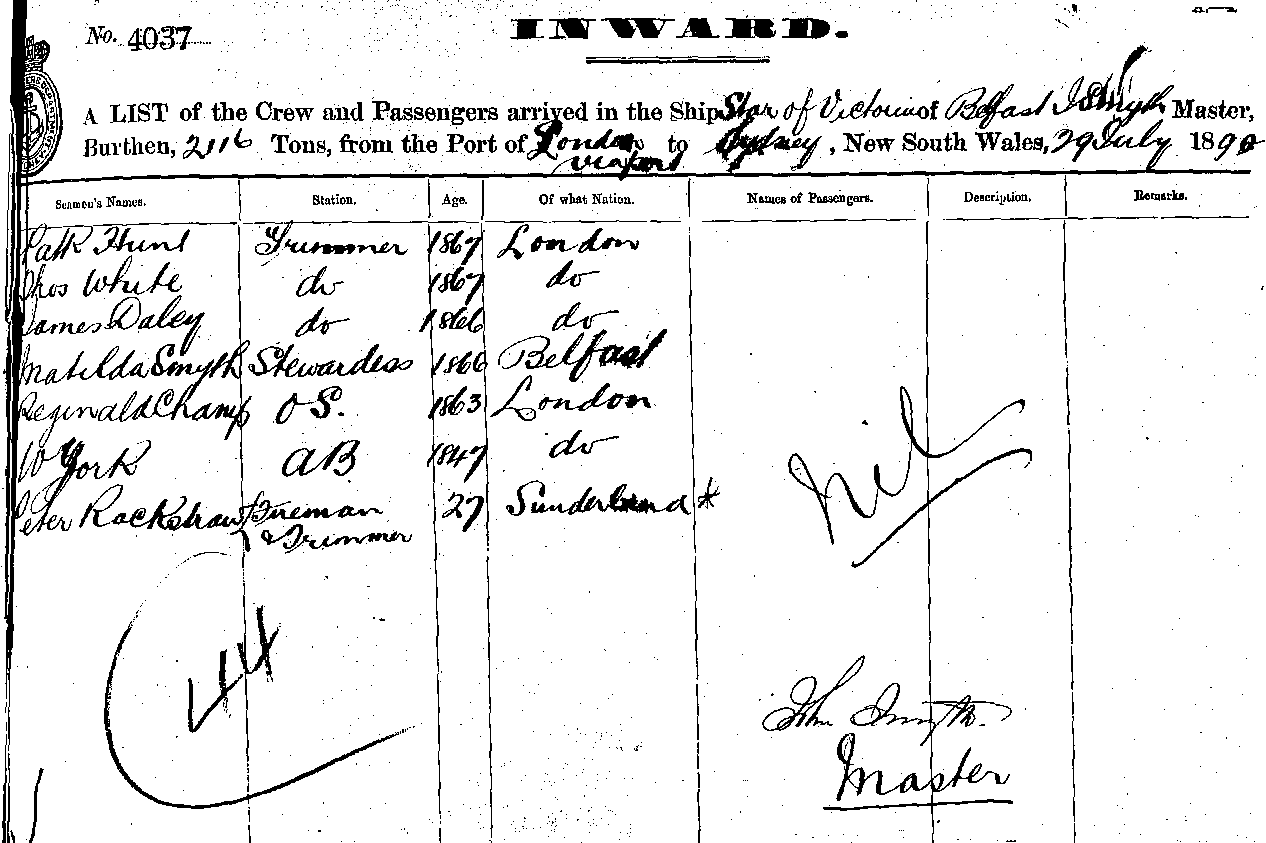 No. 4037
INWARD.
A LIST of the Crew and Passengers arrived in the Ship Star of Victoria of Belfast J Smyth Master,
Burthen, 2116 Tons, from the Port of London to Sydney, New South Wales, 29 July 1890
via ports
Seamen's Names. Station. Age. Of what Nation. Names of Passengers. Description. Remarks.
Patk Hunt Trimmer 1867 London
Thos White do 1867 do
James Daley do 1866 do
Matilda Smyth Stewardess 1866 Belfast
Reginald Champ OS. 1863 London
W York AB 1847 do
Nil
Peter Rackstraw Fireman 27 Sunderland *
& Trimmer
44
John Smyth.
Master